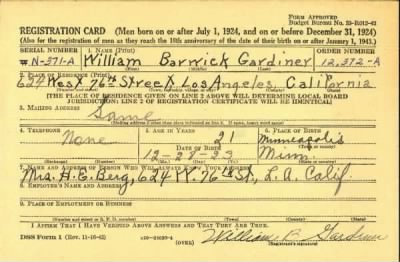 Form Approved
Budget Bureau No. 33-R012-42
REGISTRATION CARD (Men born on or after July 1, 1924, and on or before December 31, 1924)
(Also for the registration of men as they reach the 18th anniversary of the date of their birth on or after January 1, 1943.)
SERIAL NUMBER 1. NAME (Print) ORDER NUMBER
N-371-A William Barwick Gardiner 12,372-A
2. PLACE OF RESIDENCE (Print)
624 West 76th Street Los Angeles California
[THE PLACE OF RESIDENCE GIVEN ON LINE 2 ABOVE WILL DETERMINE LOCAL BOARD
JURISDICTION; LINE 2 OF REGISTRATION CERTIFICATE WILL BE IDENTICAL]
3. MAILING ADDRESS
Same
[Mailing address if other than place indicated on line 2. If same, insert word same]
4. TELEPHONE 5. AGE IN YEARS 6. PLACE OF BIRTH
None 21 Minneapolis
DATE OF BIRTH
12-28-23 Minn
7. NAME AND ADDRESS OF PERSON WHO WILL ALWAYS KNOW YOUR ADDRESS
Mrs. H.E. Berg, 624 W. 76th St., L.A. Calif.
8. EMPLOYER'S NAME AND ADDRESS
9. PLACE OF EMPLOYMENT OR BUSINESS
(Number and street or R. F. D. number) (Town) (County) (State)
I AFFIRM THAT I HAVE VERIFIED ABOVE ANSWERS AND THAT THEY ARE TRUE.
DSS Form 1 (Rev. 11-16-42) (OVER) William B Gardiner
(Registrant's signature)